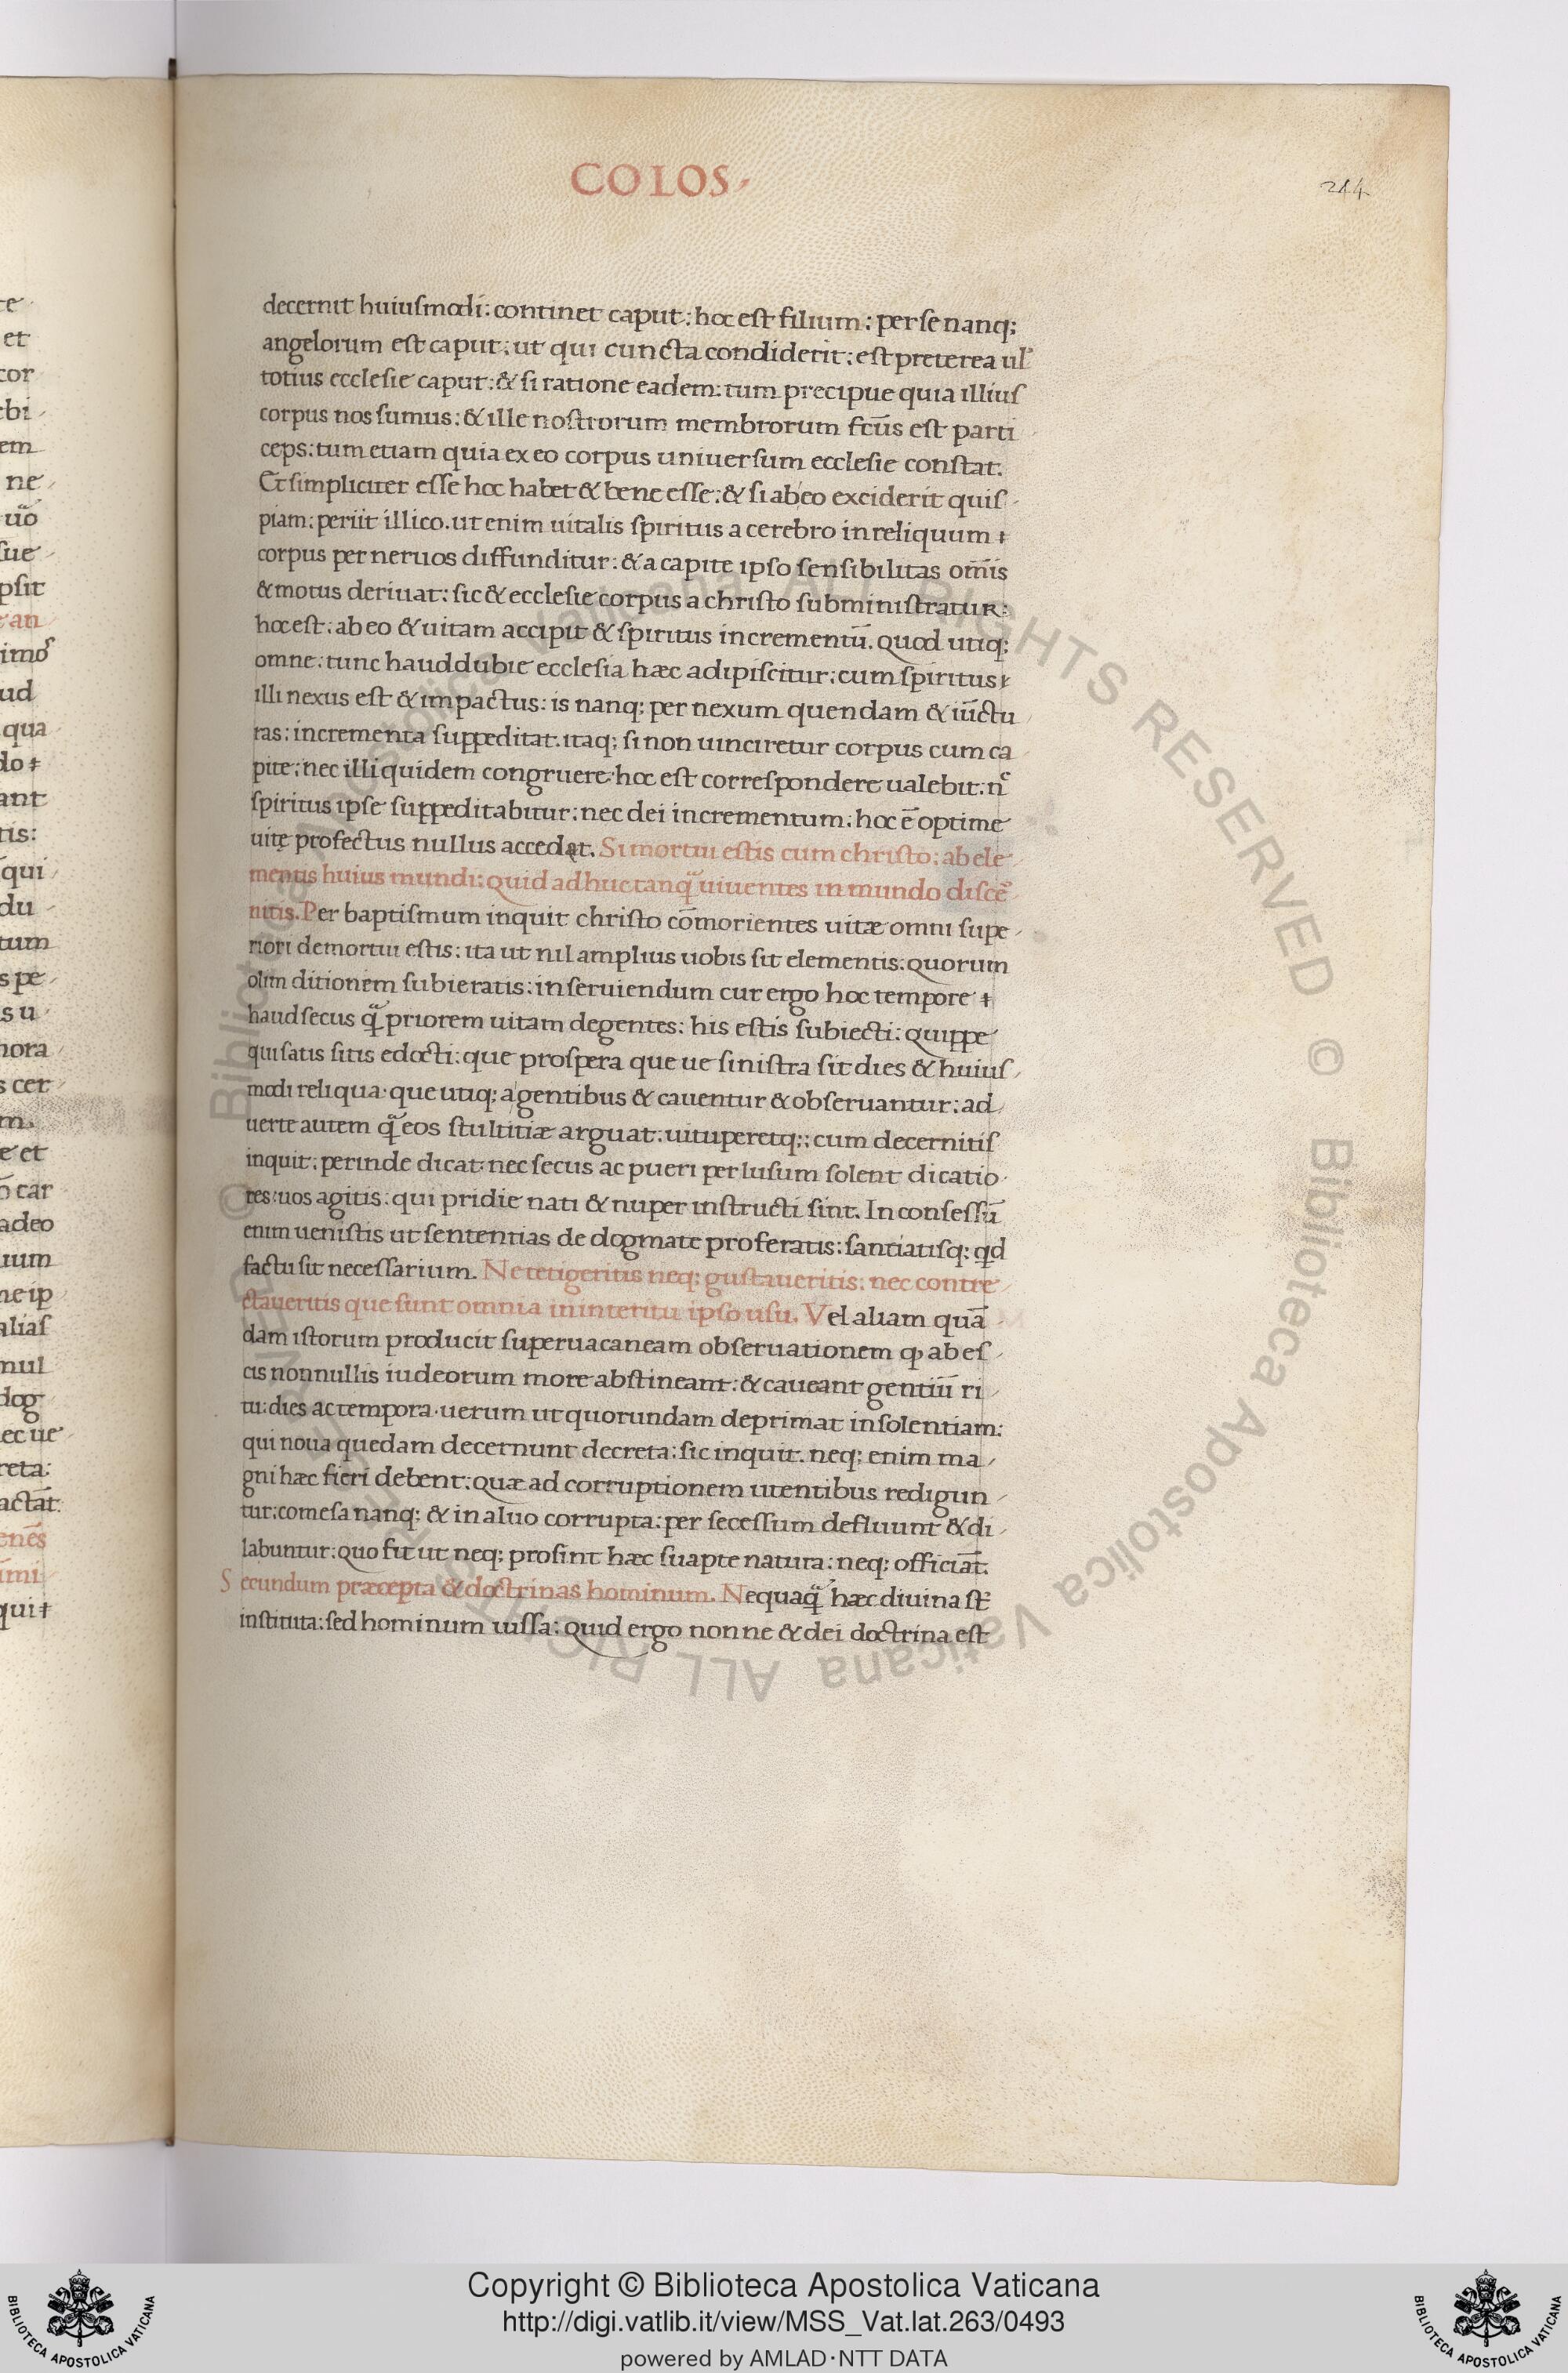 COLOS.
244
decernit huiuſmodi: continet caput: hoc eſt filium: per ſe nanq;
angelorum eſt caput: ut qui cuncta condiderit: eſt preterea ul̉
totius eccleſie caput: & ſi ratione eadem: tum precipue quia illiuſ
corpus nos ſumus: & ille noſtrorum membrorum fc̄us eſt parti
ceps: tum etiam quia ex eo corpus uniuerſum eccleſie conſtat.
Et ſimpliciter eſſe hoc habet & bene eſſe: & ſi ab eo exciderit quiſ
piam: periit illico. ut enim uitalis ſpiritus a cerebro in reliquum
corpus per neruos diffunditur: & a capite ipſo ſenſibilitas om̄is
& motus deriuat: ſic & eccleſie corpus a chriſto ſubminiſtratur:
hoc eſt: ab eo & uitam accipit & ſpiritus incrementū. quod utiq;
omne: tunc haud dubie eccleſia hæc adipiſcitur: cum ſpiritus
illi nexus eſt & impactus: is nanq; per nexum quendam & iūctu
ras: incrementa ſuppeditat. itaq; ſi non uinciretur corpus cum ca
pite: nec illi quidem congruere hoc eſt correſpondere ualebit: nͨ
ſpiritus ipſe ſuppeditabitur: nec dei incrementum: hoc ē optime
uitę profectus nullus accedat. Si mortui eſtis cum chriſto: ab ele
mentis huius mundi: quid adhuc tanq̃ uiuentes in mundo diſcẽ
nitis. Per baptiſmum inquit chriſto cōmorientes uitæ omni ſupe
riori demortui eſtis: ita ut nil amplius uobis ſit elementis: quorum
olim ditionem ſubieratis: inſeruiendum cur ergo hoc tempore
haud ſecus q̃ priorem uitam degentes: his eſtis ſubiecti: quippe
qui ſatis ſitis edocti: que proſpera que ue ſiniſtra ſit dies & huiuſ
modi reliqua. que utiq; a gentibus & cauentur & obſeruantur: ad
uerte autem q̃ eos ſtultitiæ arguat: uituperetq;: cum decernitiſ
inquit: perinde dicat: nec ſecus ac pueri per luſum ſolent dicatio
res: uos agitis: qui pridie nati & nuper inſtructi ſint. In conſeſſū
enim ueniſtis ut ſententias de dogmate proferatis: ſantiatiſq; qd
factu ſit neceſſarium. Ne tetigeritis neq; guſtaueritis: nec contre
ctaueritis que ſunt omnia in interitu ipſo uſu. Vel aliam quā
dam iſtorum producit ſuperuacaneam obſeruationem ꝙ ab eſ
cis nonnullis iudeorum more abſtineant: & caueant gentiū ri
tu: dies ac tempora. uerum ut quorundam deprimat inſolentiam:
qui noua quedam decernunt decreta: ſic inquit. neq; enim ma
gni hæc fieri debent: quæ ad corruptionem utentibus redigun
tur: comeſa nanq; & in aluo corrupta: per ſeceſſum defluunt & di
labuntur: quo fit ut neq; proſint hæc ſuapte natura: neq; officiāt.
Secundum præcepta & doctrinas hominum. Nequaq̃ hæc diuina ſt̄
inſtituta: ſed hominum iuſſa: quid ergo nonne & dei doctrina eſt
© Biblioteca Apostolica Vaticana ALL RIGHTS RESERVED
Copyright © Biblioteca Apostolica Vaticana
http://digi.vatlib.it/view/MSS_Vat.lat.263/0493
powered by AMLAD·NTT DATA
BIBLIOTECA APOSTOLICA VATICANA
BIBLIOTECA APOSTOLICA VATICANA